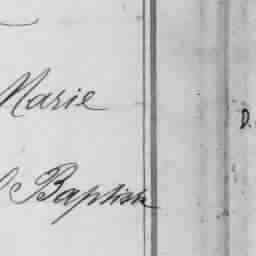 Marie
D.
Baptiste